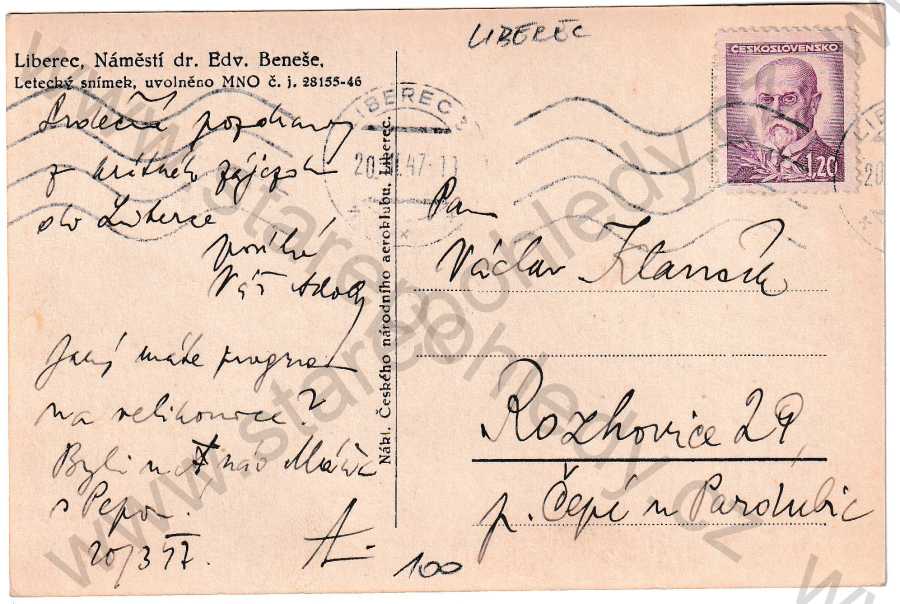 LIBEREC
Liberec, Náměstí dr. Edv. Beneše,
Letecký snímek, uvolněno MNO č. j. 28155-46
Srdečné pozdravy
z krátkého zájezdu
do Liberce
posílá
Váš
Jaký máte program
na velikonoce?
Byli u nás
s Pepou!
20/3 47
Nákl. Českého národního aeroklubu, Liberec.
ČESKOSLOVENSKO
1,20
LIBEREC 3
20.III.47-11
LIBE
20
Pan
Václav
Rozhovice 29
p. Čepí u Pardubic
100
www.starepohledy.cz